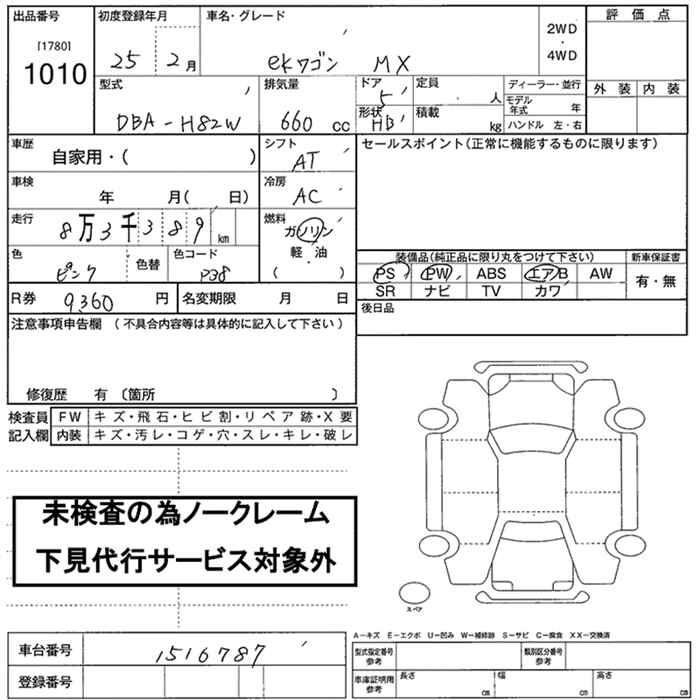 出品番号 初度登録年月 車名・グレード 2WD ・ 4WD 評価点
[1780] 1010 25 2月 ekワゴン MX
外装 内装
型式 排気量 ドア 定員 ディーラー・並行
DBA-H82W 660 cc 5 人 モデル年式 年
形状 積載
HB kg ハンドル 左・右
車歴 シフト セールスポイント(正常に機能するものに限ります)
自家用・( ) AT
車検 冷房
年 月( 日) AC
走行 燃料
8万3千389km ガソリン
軽・油
( ・ )
色 色替 色コード 装備品(純正品に限り丸をつけて下さい) 新車保証書
ピンク P38 PS PW ABS エアB AW 有・無
SR ナビ TV カワ
R券 9,360 円 名変期限 月 日 後日品
注意事項申告欄 (不具合内容等は具体的に記入して下さい)
修復歴 有 〔箇所 〕
検査員 FW キズ・飛石・ヒビ割・リペア跡・X要
記入欄 内装 キズ・汚レ・コゲ・穴・スレ・キレ・破レ
未検査の為ノークレーム
下見代行サービス対象外
スペア
A-キズ E-エクボ U-凹み W-補修跡 S-サビ C-腐食 XX-交換済
車台番号 1516787 型式指定番号 参考 類別区分番号 参考
登録番号 車庫証明用 参考 長さ cm 幅 cm 高さ cm